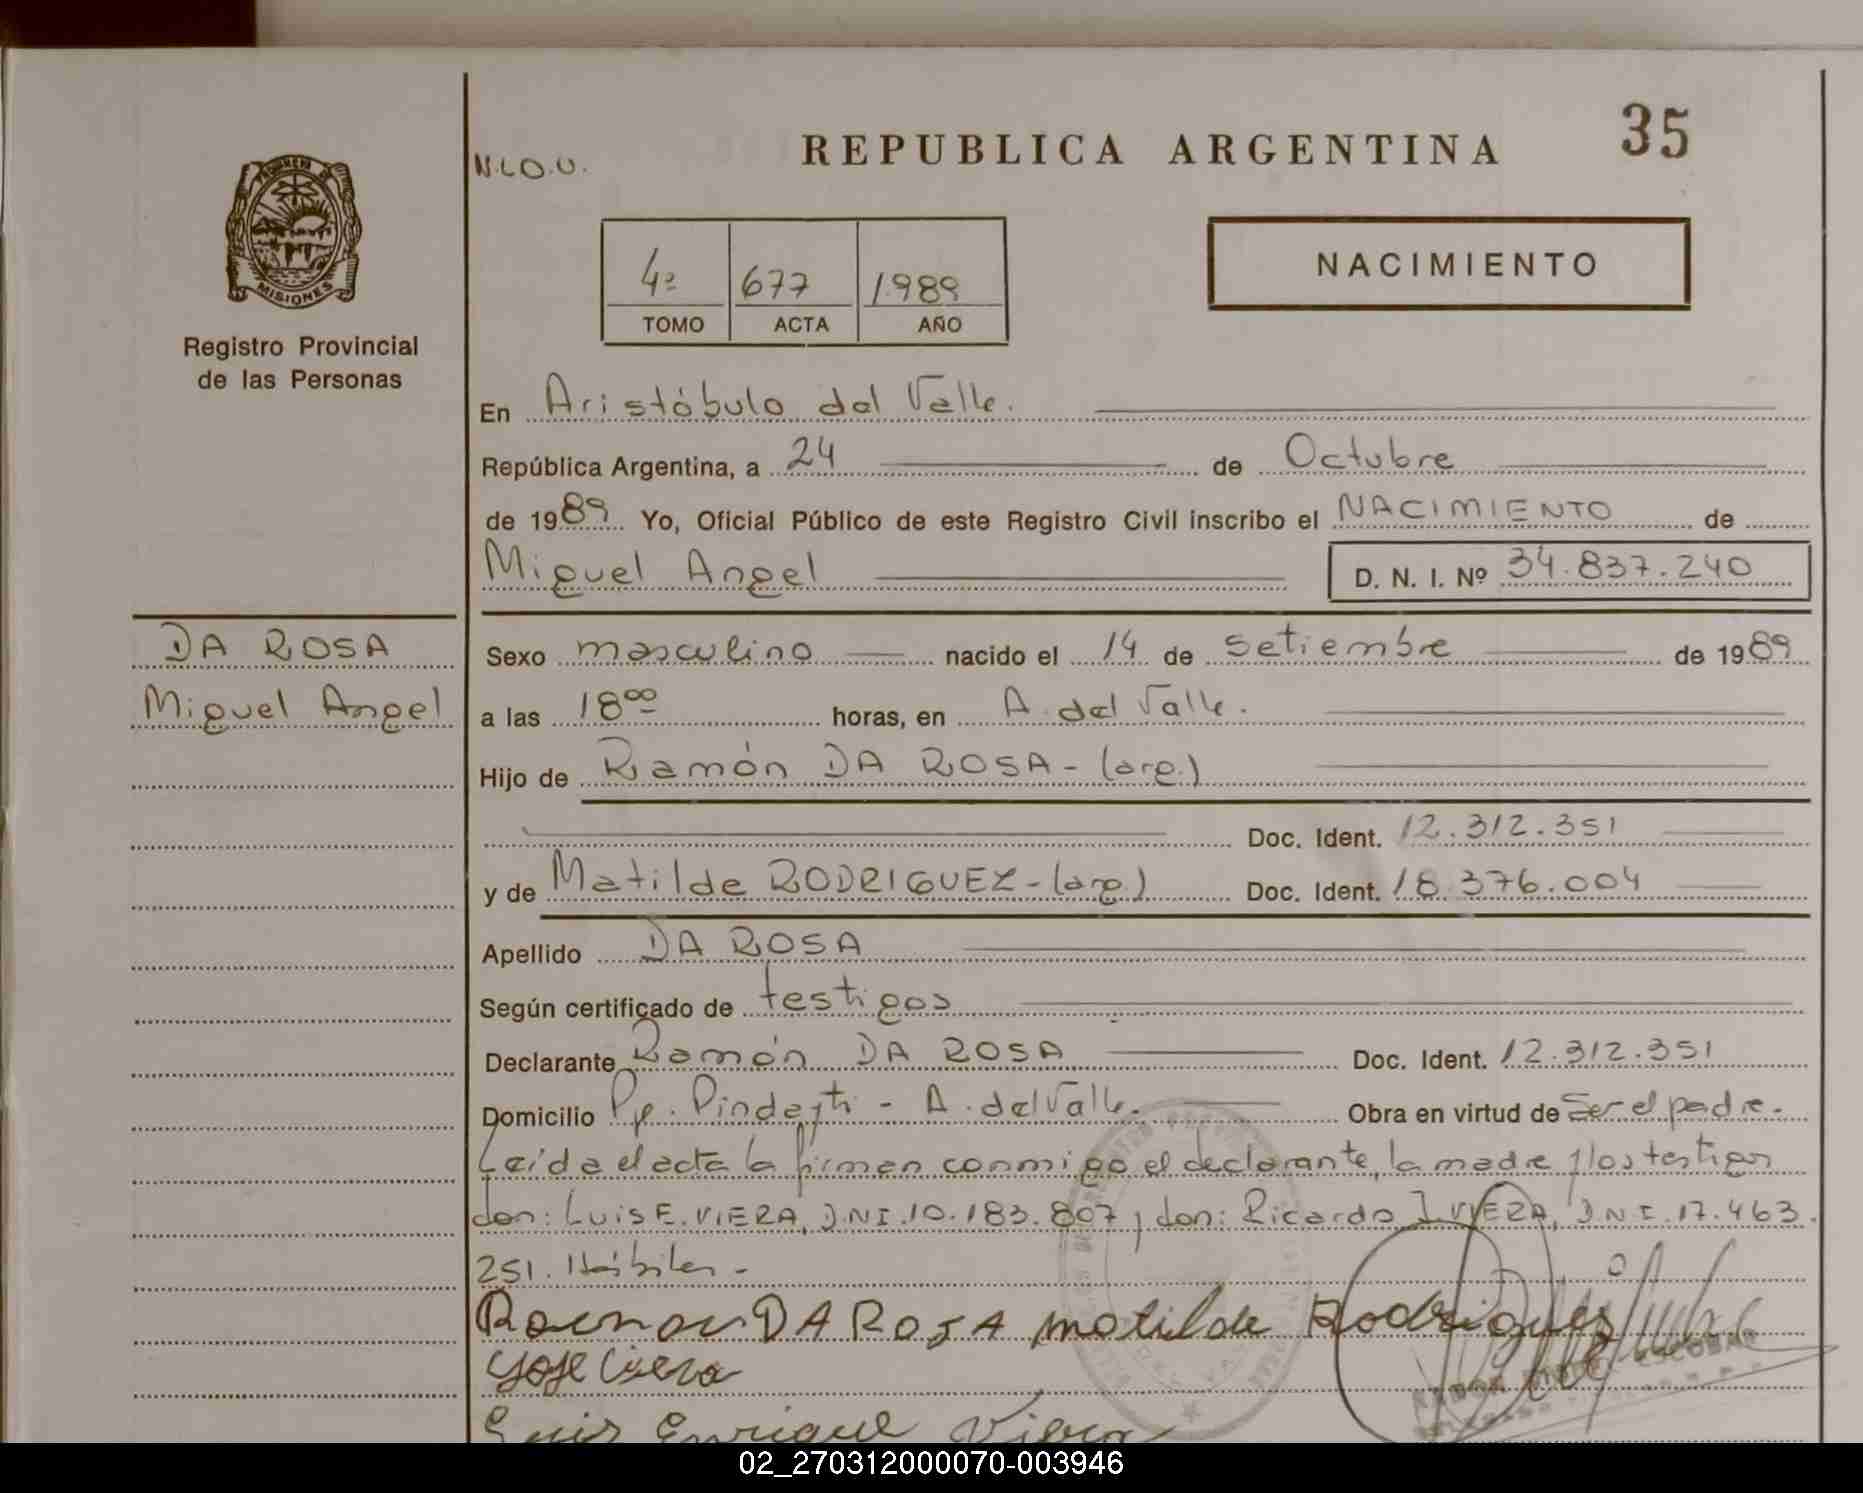 REPUBLICA ARGENTINA
35
N.L.O.U.
NACIMIENTO
4º 677 1989
TOMO ACTA AÑO
MISIONES
Registro Provincial
de las Personas
En Aristóbulo del Valle.
República Argentina, a 24 de Octubre
de 1989 Yo, Oficial Público de este Registro Civil inscribo el NACIMIENTO de
Miguel Angel D. N. I. Nº 34.837.240
DA ROSA
Miguel Angel
Sexo masculino nacido el 14 de Setiembre de 1989
a las 18⁰⁰ horas, en A. del Valle.
Hijo de Ramón DA ROSA - (arg.)
Doc. Ident. 12.312.351
y de Matilde RODRIGUEZ - (arg.) Doc. Ident. 18.376.004
Apellido DA ROSA
Según certificado de testigos
Declarante Ramón DA ROSA Doc. Ident. 12.312.351
Domicilio A. del Valle. Obra en virtud de ser el padre.
Leída el acta la firman conmigo el declarante, la madre y los testigos
don: Luis E. VIERA, D.N.I. 10.183.807 y don: Ricardo J. VIERA, D.N.I. 17.463.
251. Hábiles -
Ramon DA ROSA Matilde Rodriguez
Jose Viera
Luis Enrique Viera
ESCOBAR
02_270312000070-003946